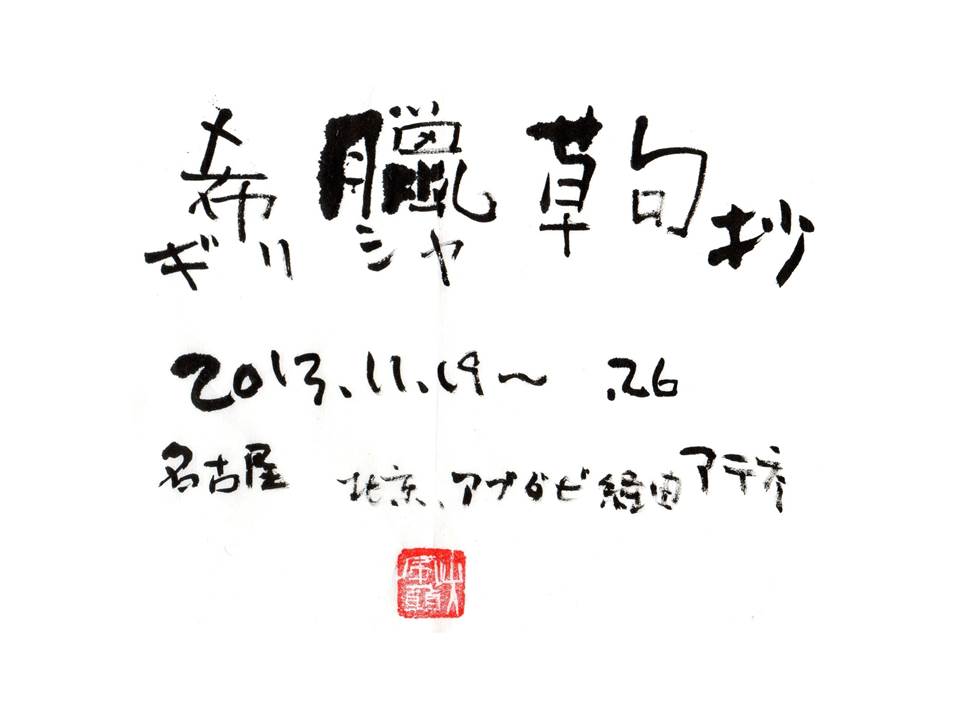 希臘草句抄
ギリシャ
2013.11.19〜 .26
名古屋 北京、アブダビ経由アテネ